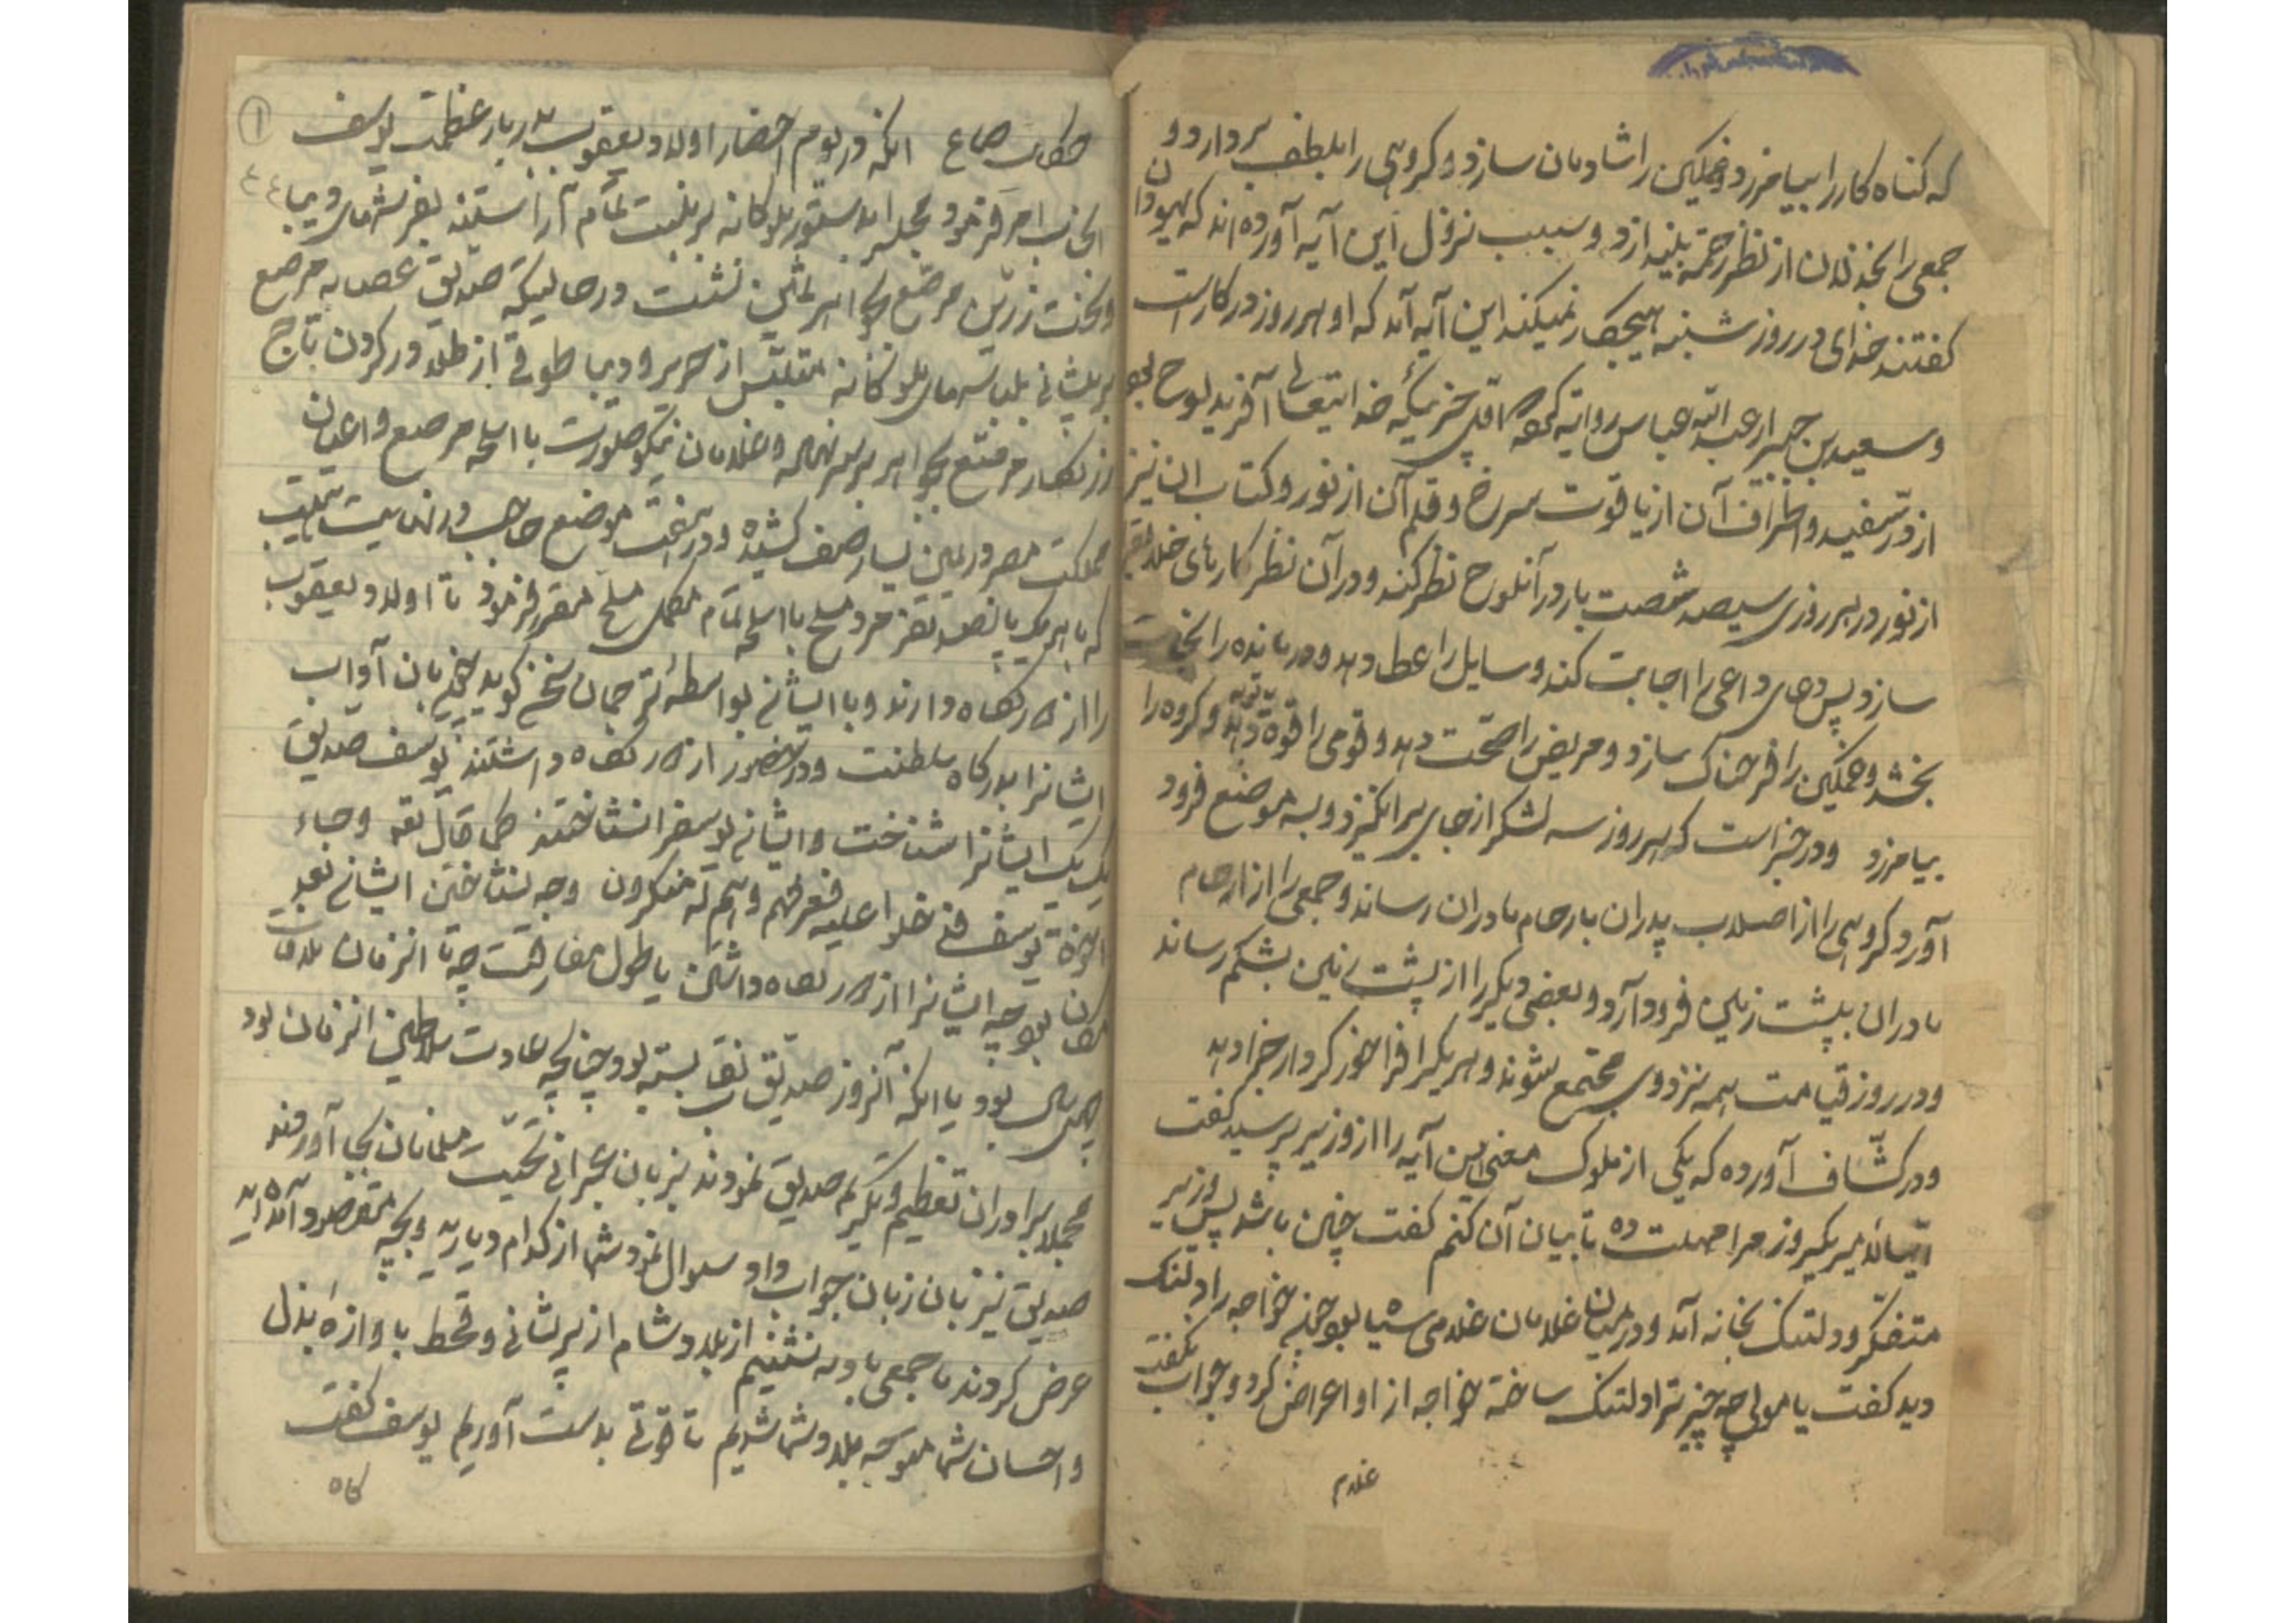 که کناه کار را بیامرزد و غمکین را شادمان سازد و کروهی را بلطف بردارد و
جمعی را بخذلان از نظر رحمة بیندازد و سبب نزول این آیه آورده اند که یهودان
کفتند خدای در روز شنبه هیچ کار نمیکند این آیه آمد که او هر روز در کار است
و سعید بن جبیر از عبد الله عباس روایة کرده اول چیزیکه خدایتعالی آفرید لوح بود
از در سفید و اطراف آن از یاقوت سرخ و قلم آن از نور و کتاب ان نیز
از نور در هر روزی سیصد شصت بار در آنلوح نظر کند و در آن نظر کارهای خلق
سازد پس دعای داعی را اجابت کند و سایل را عطا دهد و درمانده را نجات
بخشد و غمکین را فرحناک سازد و مریض را صحت دهد و قومی را توبه دهد و کروه را
بیامرزد و در خبر است که هر روز سه لشکر از جای برانکیزد و بسه موضع فرود
آورد کروهی را از اصلاب پدران بارحام مادران رساند و جمعی را از ارحام
مادران بپشت زمین فرود آرد و بعضی دیکر را از پشت زمین بشکم رساند
و در روز قیامت همه نزد وی مجتمع شوند و هر یکرا فراخور کردار جزا دهد
و در کشّاف آورده که یکی از ملوک معنی این آیه را از وزیر پرسید کفت
ایها الامیر یکروز مرا مهلت ده تا بیان آن کنم کفت چنین باشد پس وزیر
متفکر و دلتنک بخانه آمد و در میان غلامان غلامی سیاه بود چون خواجه را دلتنک
دید کفت یا مولی چه چیز ترا دلتنک ساخته خواجه از او اعراض کرد و جواب نکفت
غلام
۱
حکایت صاع انکه در یوم احضار اولاد یعقوب بدربار عظمت یوسف
انجناب امر فرمود مجلس را بدستور ملوکانه بزینت تمام آراستند بفرشهای دیبا
و بتخت زرین مرصع بجواهر ثمین نشست در حالیکه صدیق عصابه مرصع
بر پیشانی بلباسهای ملوکانه متلبس از حریر و دیبا طوقی از طلا در کردن تاج
زرنکار مرصع بجواهر بر سر نهاده و غلامان نیکو صورت با اسلحه مرصع و اعیان
مملکت مصر در یمین یسار صف کشیده و در هفت موضع حاجب در نهایت هیبت
که با هر یک پانصد نفر مرد مسلح با اسلحه تمام مکمل مسلح مقرر فرمود تا اولاد یعقوب
را از دور نکاه دارند و با ایشان بواسطه ترجمان سخن کوید آداب
ایشانرا بدرکاه سلطنت و در حضور از دور نکاه داشتند یوسف صدیق
یک یک ایشانرا شناخت و ایشان یوسف را نشناختند کما قال الله و جاء
اخوة یوسف فدخلوا علیه فعرفهم و هم له منکرون وجه نشناختن ایشان بعد
مکان بود چه ایشانرا از دور نکاه داشتن یا طول مفارقت چه تا انزمان ملاقات
چهل سال بود یا انکه آنروز صدیق نقاب بسته بود چنانچه عادت سلاطین انزمان بود
مجملا برادران تعظیم و تکریم صدیق نمودند بزبان عبرانی تحیت سلیمانان بجا آوردند
صدیق نیز بان زبان جواب داد و سوال نمود شما از کدام دیارید و بچه مقصد آمده اید
عرض کردند ما جمعی بادیه نشینیم از بلاد شام از پریشانی و قحط باوازه بذل
و احسان شما متوجه بلاد شما شدیم تا قوتی بدست آوریم یوسف کفت
کاه